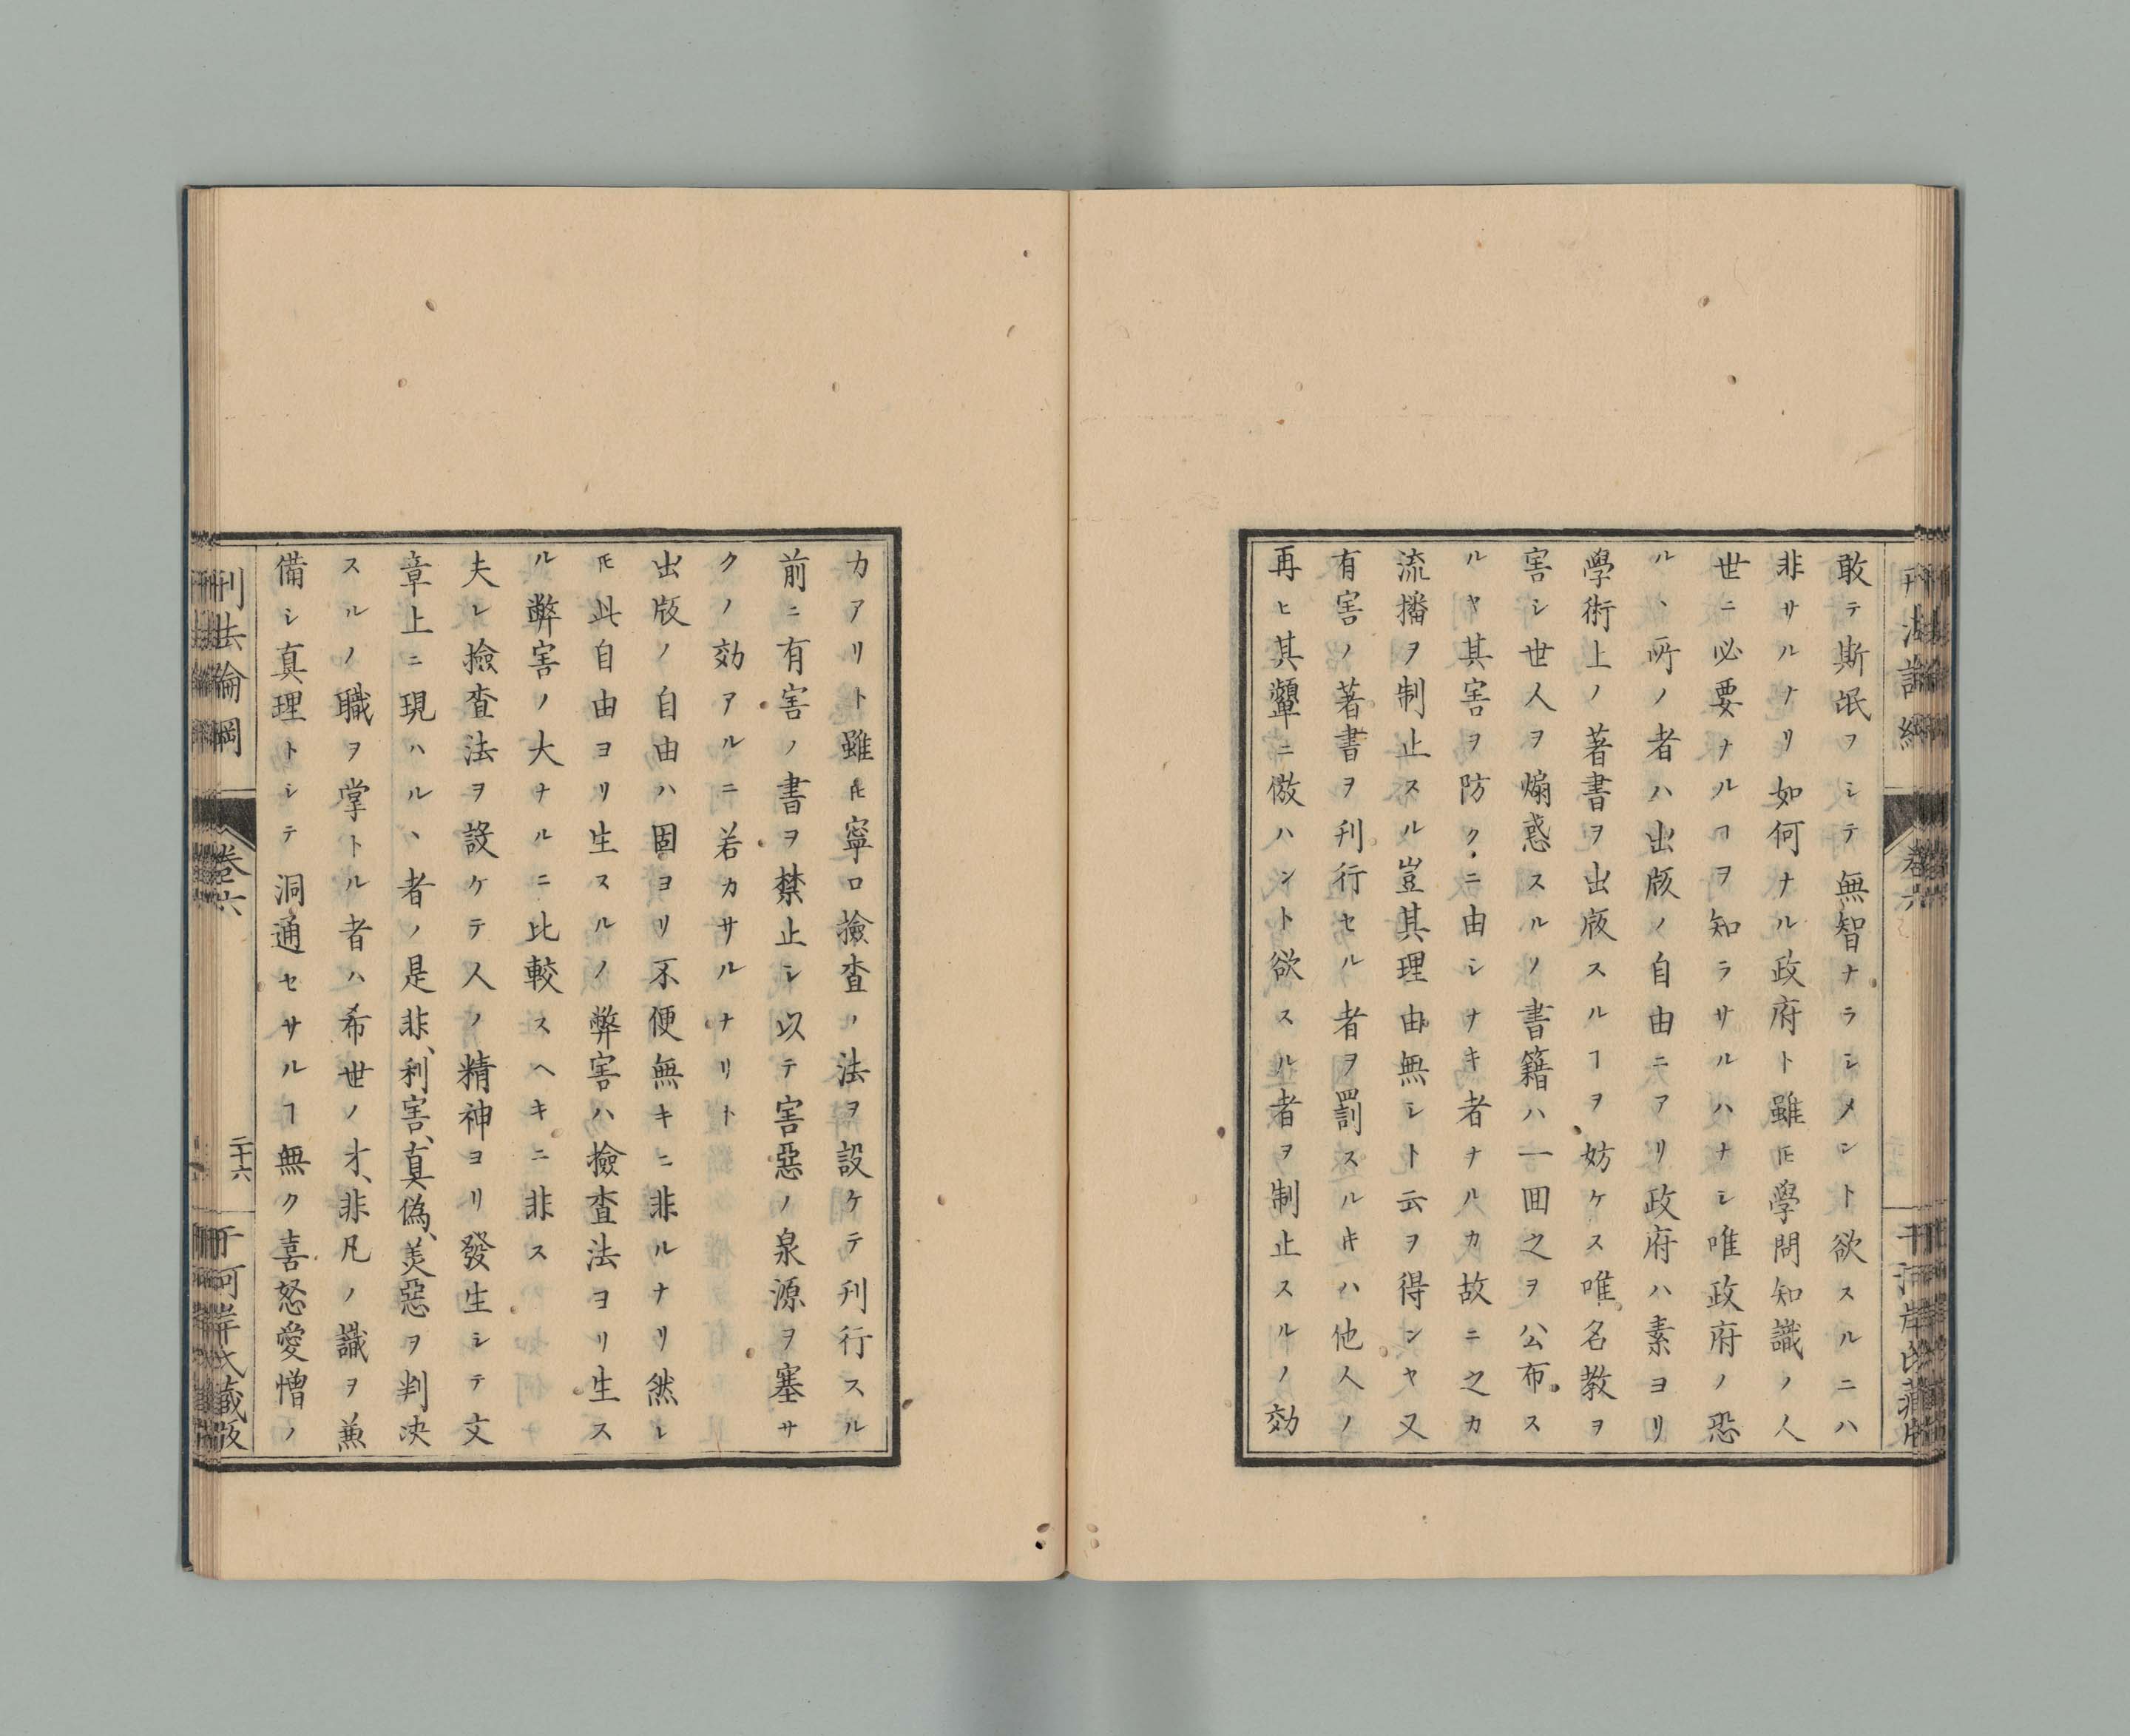 敢テ斯氓ヲシテ無智ナラシメント欲スルニハ
非サルナリ如何ナル政府ト雖𪜈學問知識ノ人
世ニ必要ナルヿヲ知ラサルハナシ唯政府ノ恐
ルヽ所ノ者ハ出版ノ自由ニアリ政府ハ素ヨリ
學術上ノ著書ヲ出版スルヿヲ妨ケス唯名教ヲ
害シ世人ヲ煽惑スルノ書籍ハ一囬之ヲ公布ス
ルヤ其害ヲ防クニ由シナキ者ナルカ故ニ之カ
流播ヲ制止スル豈其理由無シト云ヲ得ンヤ又
有害ノ著書ヲ刊行セル者ヲ罰スルキハ他人ノ
再ヒ其顰ニ傚ハント欲スル者ヲ制止スルノ効
刑法論綱
卷六
二十六
千河岸氏藏版
カアリト雖𪜈寧ロ撿査ノ法ヲ設ケテ刊行スル
前ニ有害ノ書ヲ禁止シ以テ害惡ノ泉源ヲ塞サ
クノ効アルニ若カサルナリト
出版ノ自由ハ固ヨリ不便無キニ非ルナリ然レ
𪜈此自由ヨリ生スルノ弊害ハ撿査法ヨリ生ス
ル弊害ノ大ナルニ比較スヘキニ非ス
夫レ撿査法ヲ設ケテ人ノ精神ヨリ發生シテ文
章上ニ現ハルヽ者ノ是非、利害、真偽、美惡ヲ判決
スルノ職ヲ掌トル者ハ希世ノ才、非凡ノ識ヲ兼
備シ真理トシテ洞通セサルヿ無ク喜怒愛憎ノ
刑法論綱
卷六
二十六
千河岸氏藏版